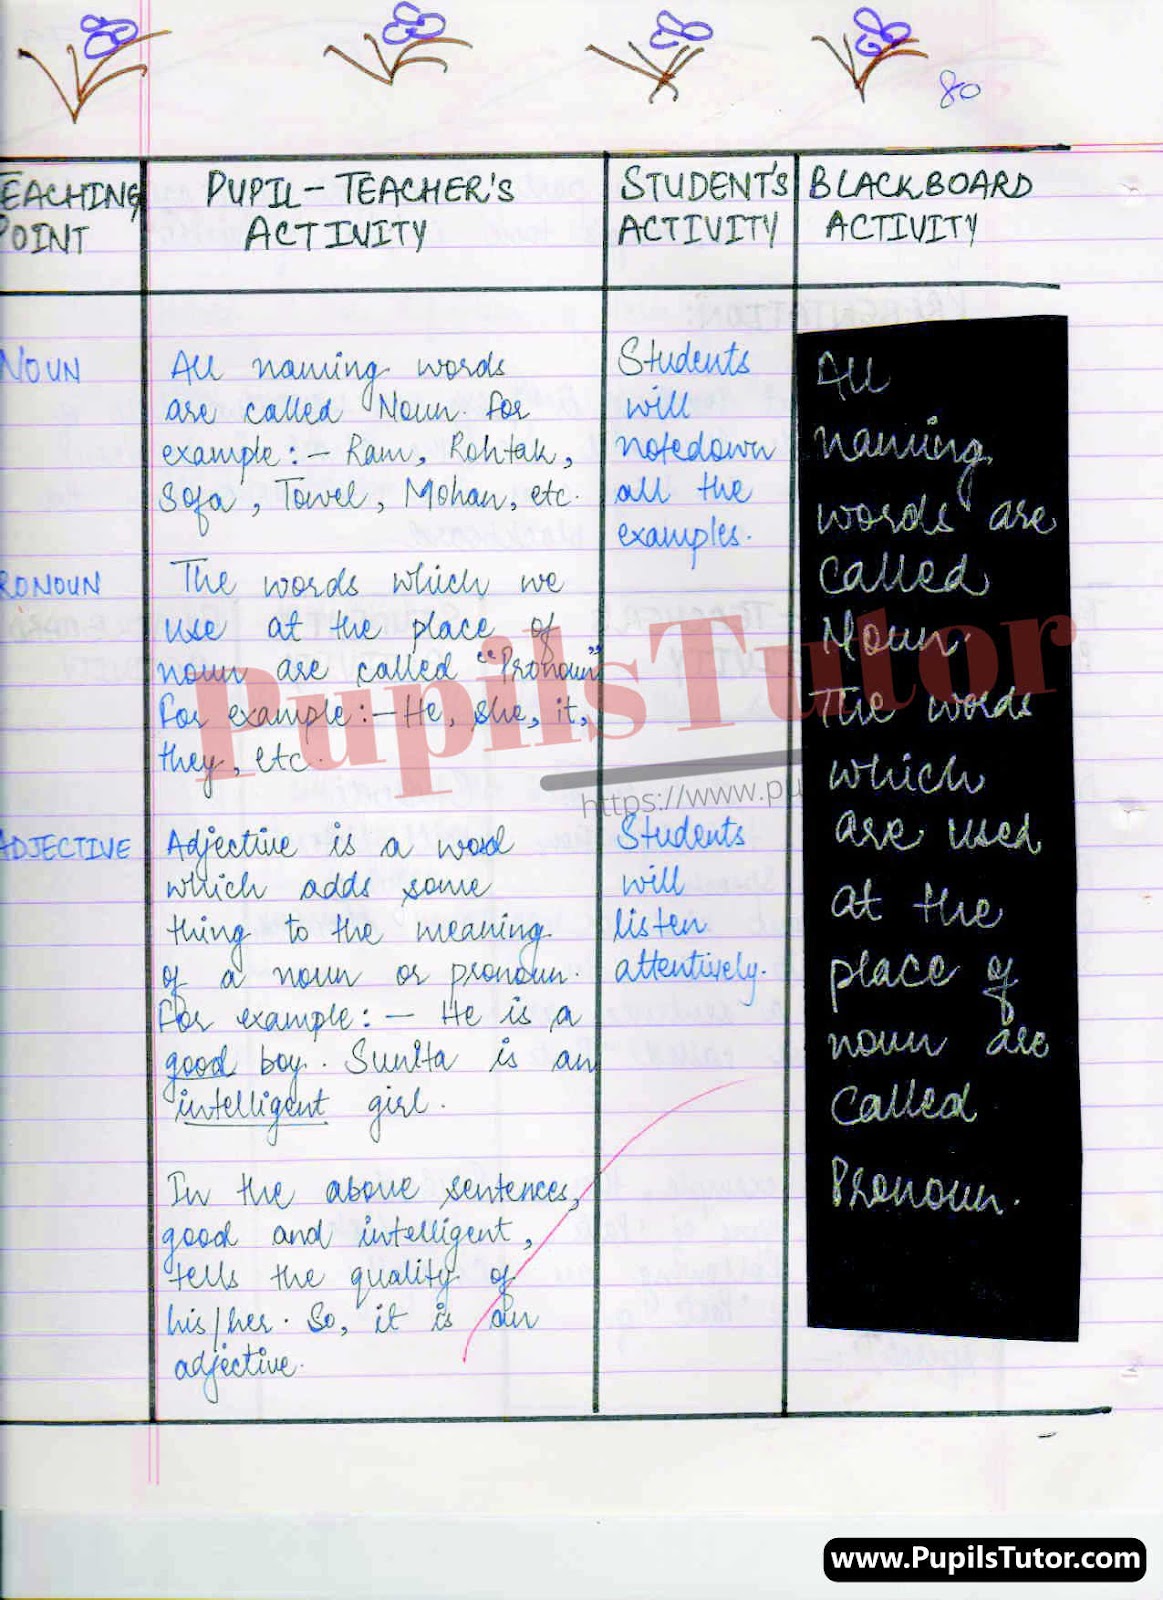 80
TEACHING
POINT
PUPIL-TEACHER'S
ACTIVITY
STUDENT'S
ACTIVITY
BLACKBOARD
ACTIVITY
NOUN
All naming words
are called Noun. For
example:- Ram, Rohtak,
Sofa, Towel, Mohan, etc.
Students
will
notedown
all the
examples.
PRONOUN
The words which we
use at the place of
noun are called "Pronoun"
For example:- He, she, it,
they, etc.
ADJECTIVE
Adjective is a word
which adds some
thing to the meaning
of a noun or pronoun.
For example:- He is a
good boy. Sunita is an
intelligent girl.
Students
will
listen
attentively.
In the above sentences,
good and intelligent,
tells the quality of
his/her. So, it is an
adjective.
All
naming
words are
called
Noun.
The words
which
are used
at the
place of
noun are
called
Pronoun.
PupilsTutor
https://www.pu
www.PupilsTutor.com